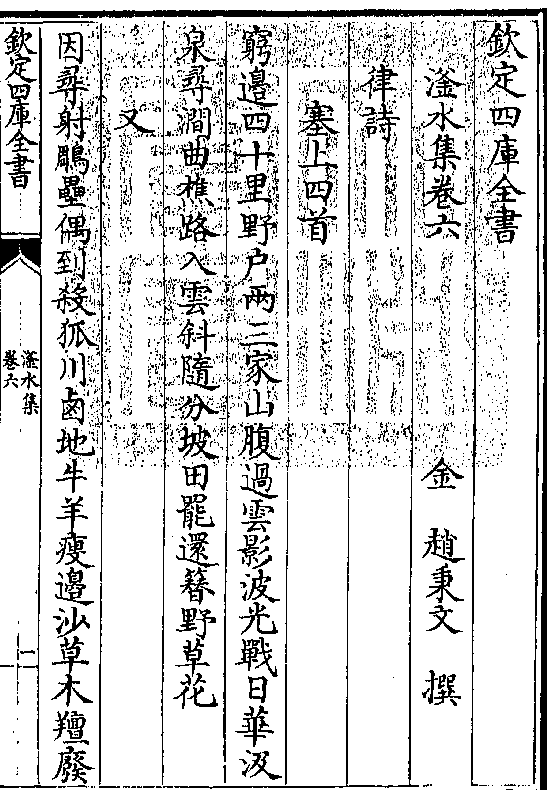 欽定四庫全書
滏水集卷六
金 趙秉文 撰
律詩
塞上四首
窮邉四十里野户兩三家山腹過雲影波光戰日華汲
泉尋澗曲樵路入雲斜隨分坡田罷還簮野草花
又
因尋射鵰壘偶到殺狐川鹵地牛羊瘦邉沙草木羶廢
欽定四庫全書
滏水集
卷六